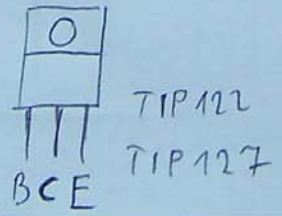 TIP122
TIP127
BCE